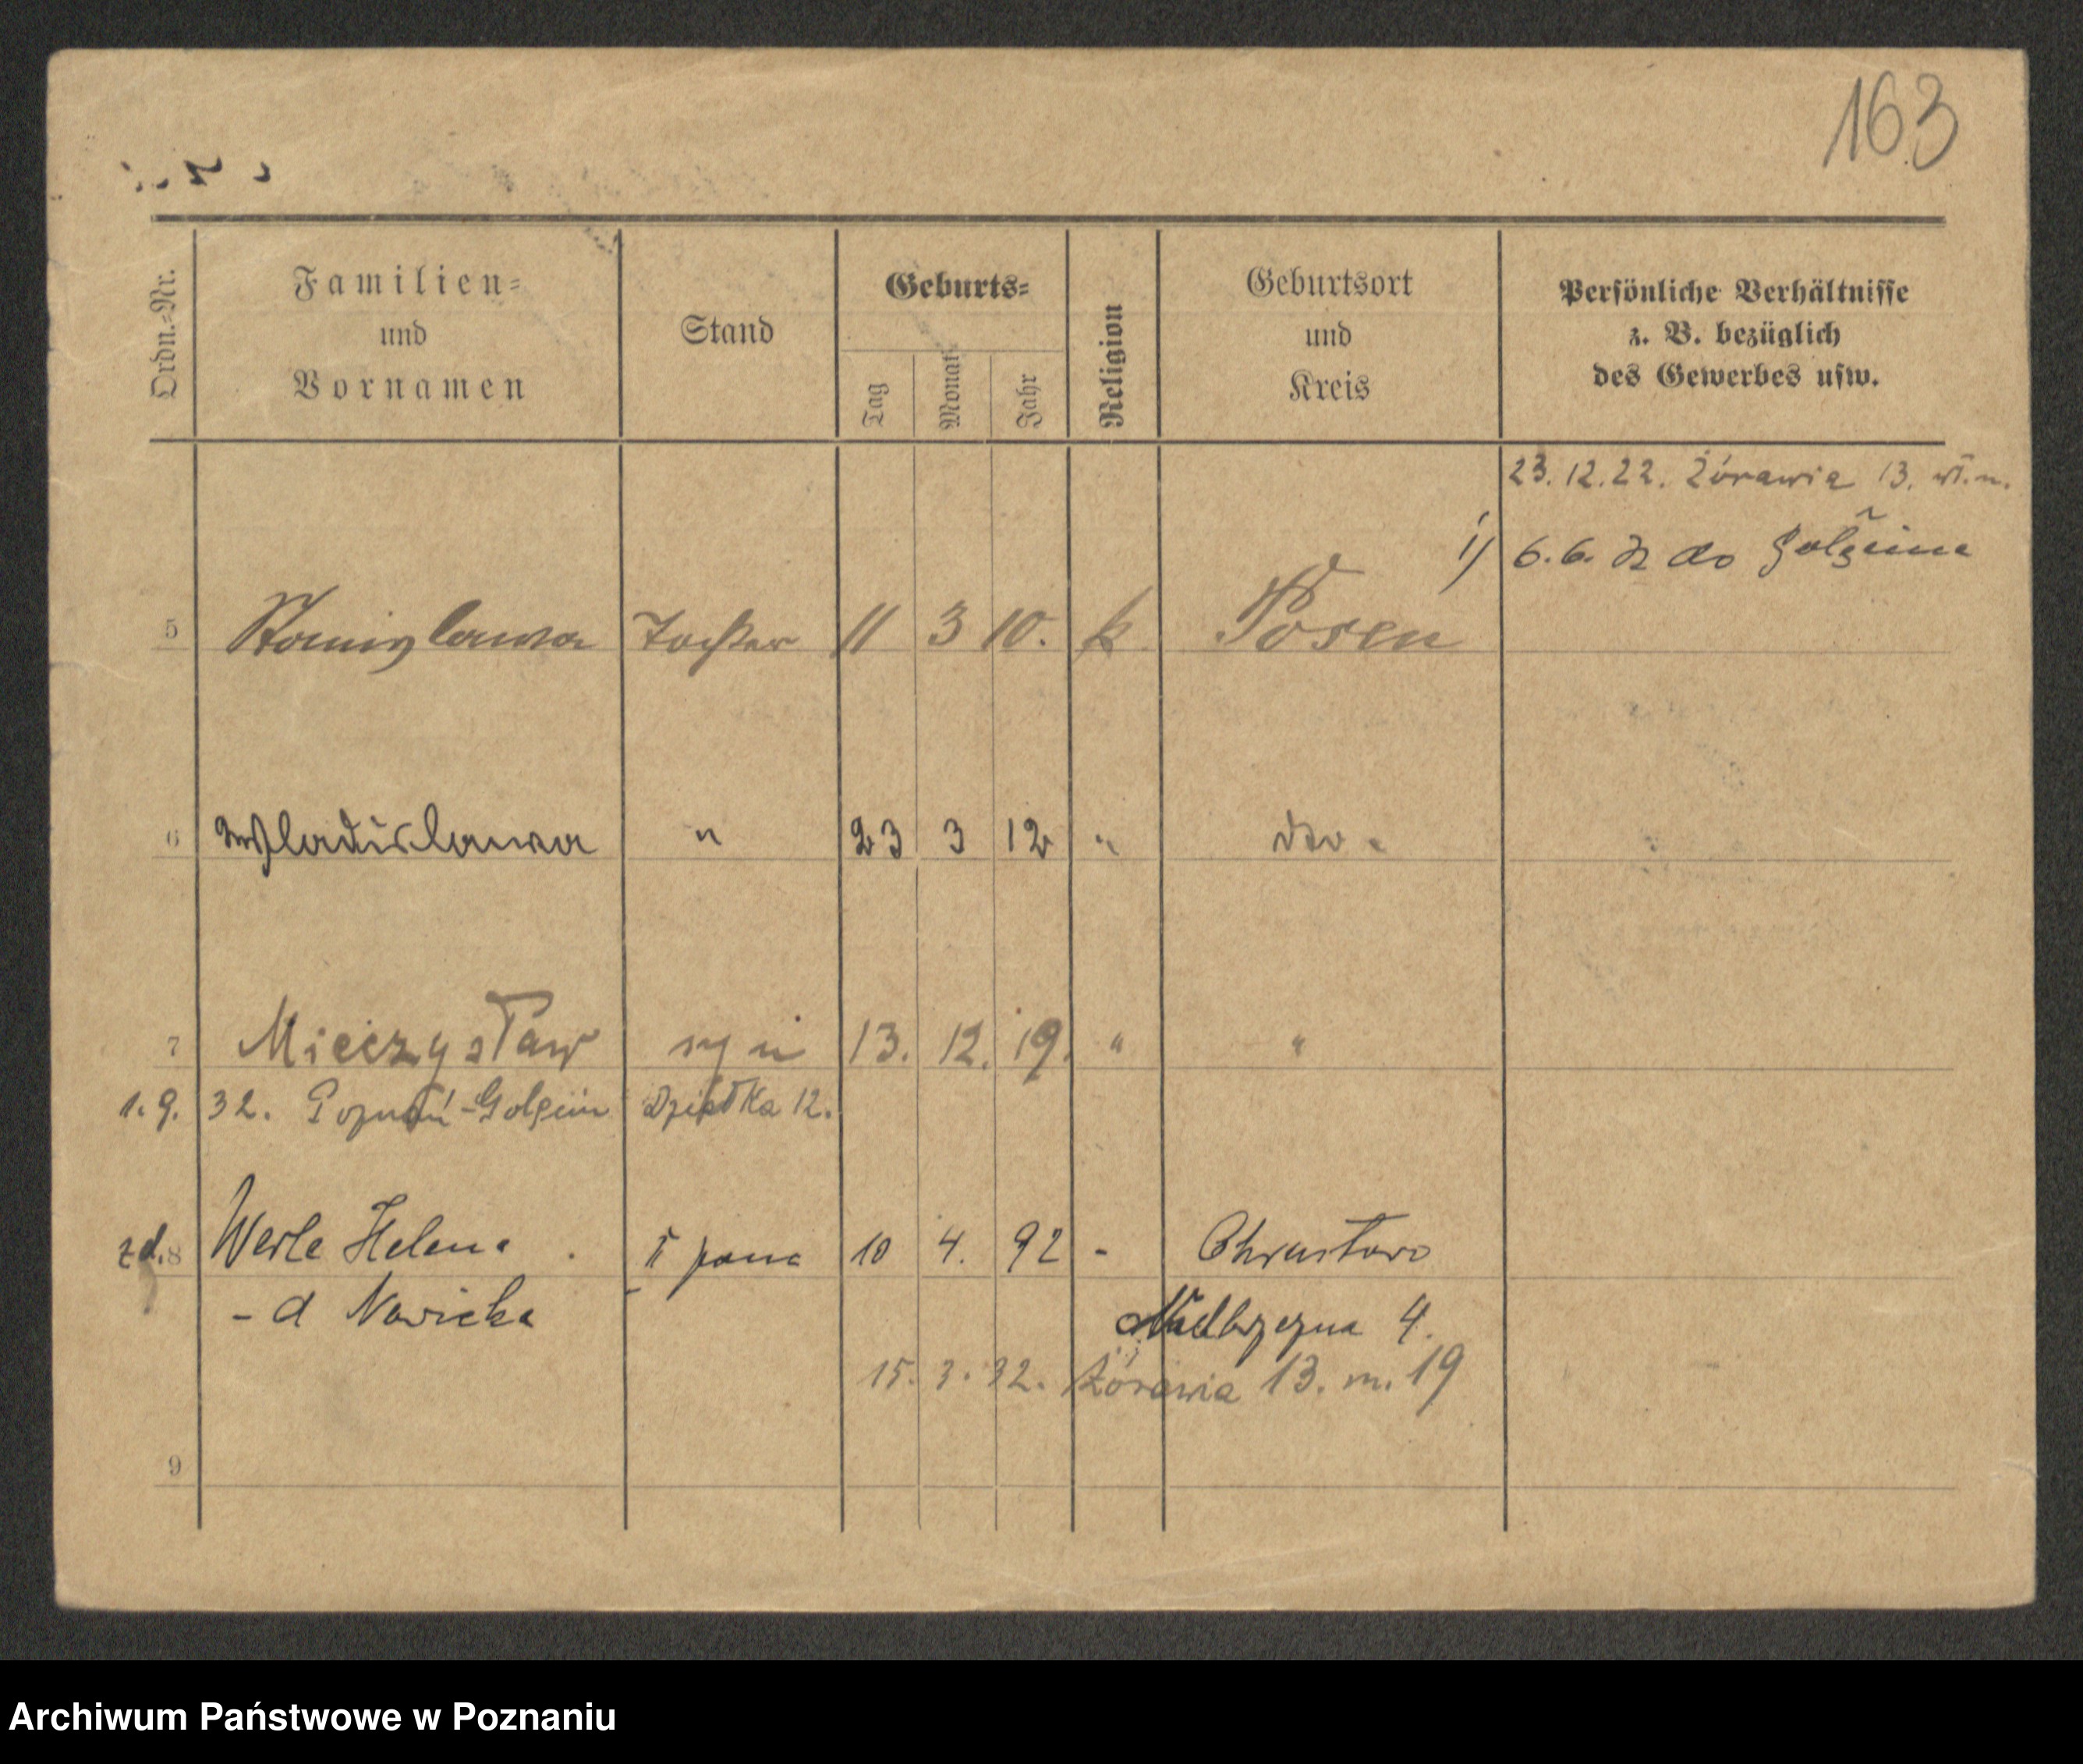 163
Ordn.=Nr.
Familien=
und
Vornamen
Stand
Geburts=
Tag
Monat
Jahr
Religion
Geburtsort
und
Kreis
Persönliche Verhältnisse
z. B. bezüglich
des Gewerbes usw.
23. 12. 22. Żórawia 13.
1) 6. 6. do Golęcina
5 Stanislawa Tochter 11 3 10. k Posen
6 Wladislawa " 23 3 12 " dto.
7 Mieczysław syn 13. 12. 19. " "
1. 9. 32. Poznań-Golęcin Dziatka 12.
zd. 8 Werle Helena II żona 10 4. 92 - Chrustowo
- d Nowicka
Nadbrzezna 4.
15. 3. 32. Żórawia 13. m. 19
9
Archiwum Państwowe w Poznaniu